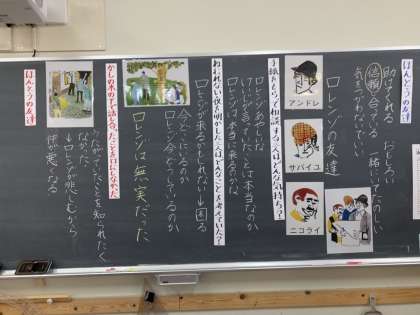 ほんとうの友達
助けてくれる おもしろい
信頼し合っている 一緒にいてたのしい
気をつかわないでいい
ロレンゾの友達
アンドレ
サバイユ
ニコライ
手紙をもらって相談する三人はどんな気持ち？
ロレンゾあやしいな
けいさつが言っていたことは本当なのか
ロレンゾは本当に来るのかな
ねむれない夜を明かした三人はどんなことを考えていた？
ロレンゾが来るかもしれない→困る
ロレンゾ今どうしているのか
今どこにいるのか
ロレンゾは無実だった
かしの木の下で話し合ったことを口にしなかった
うたがっていたことを知られたくなかった
↓ロレンゾが悲しむから
仲が悪くなる
ほんとうの友達